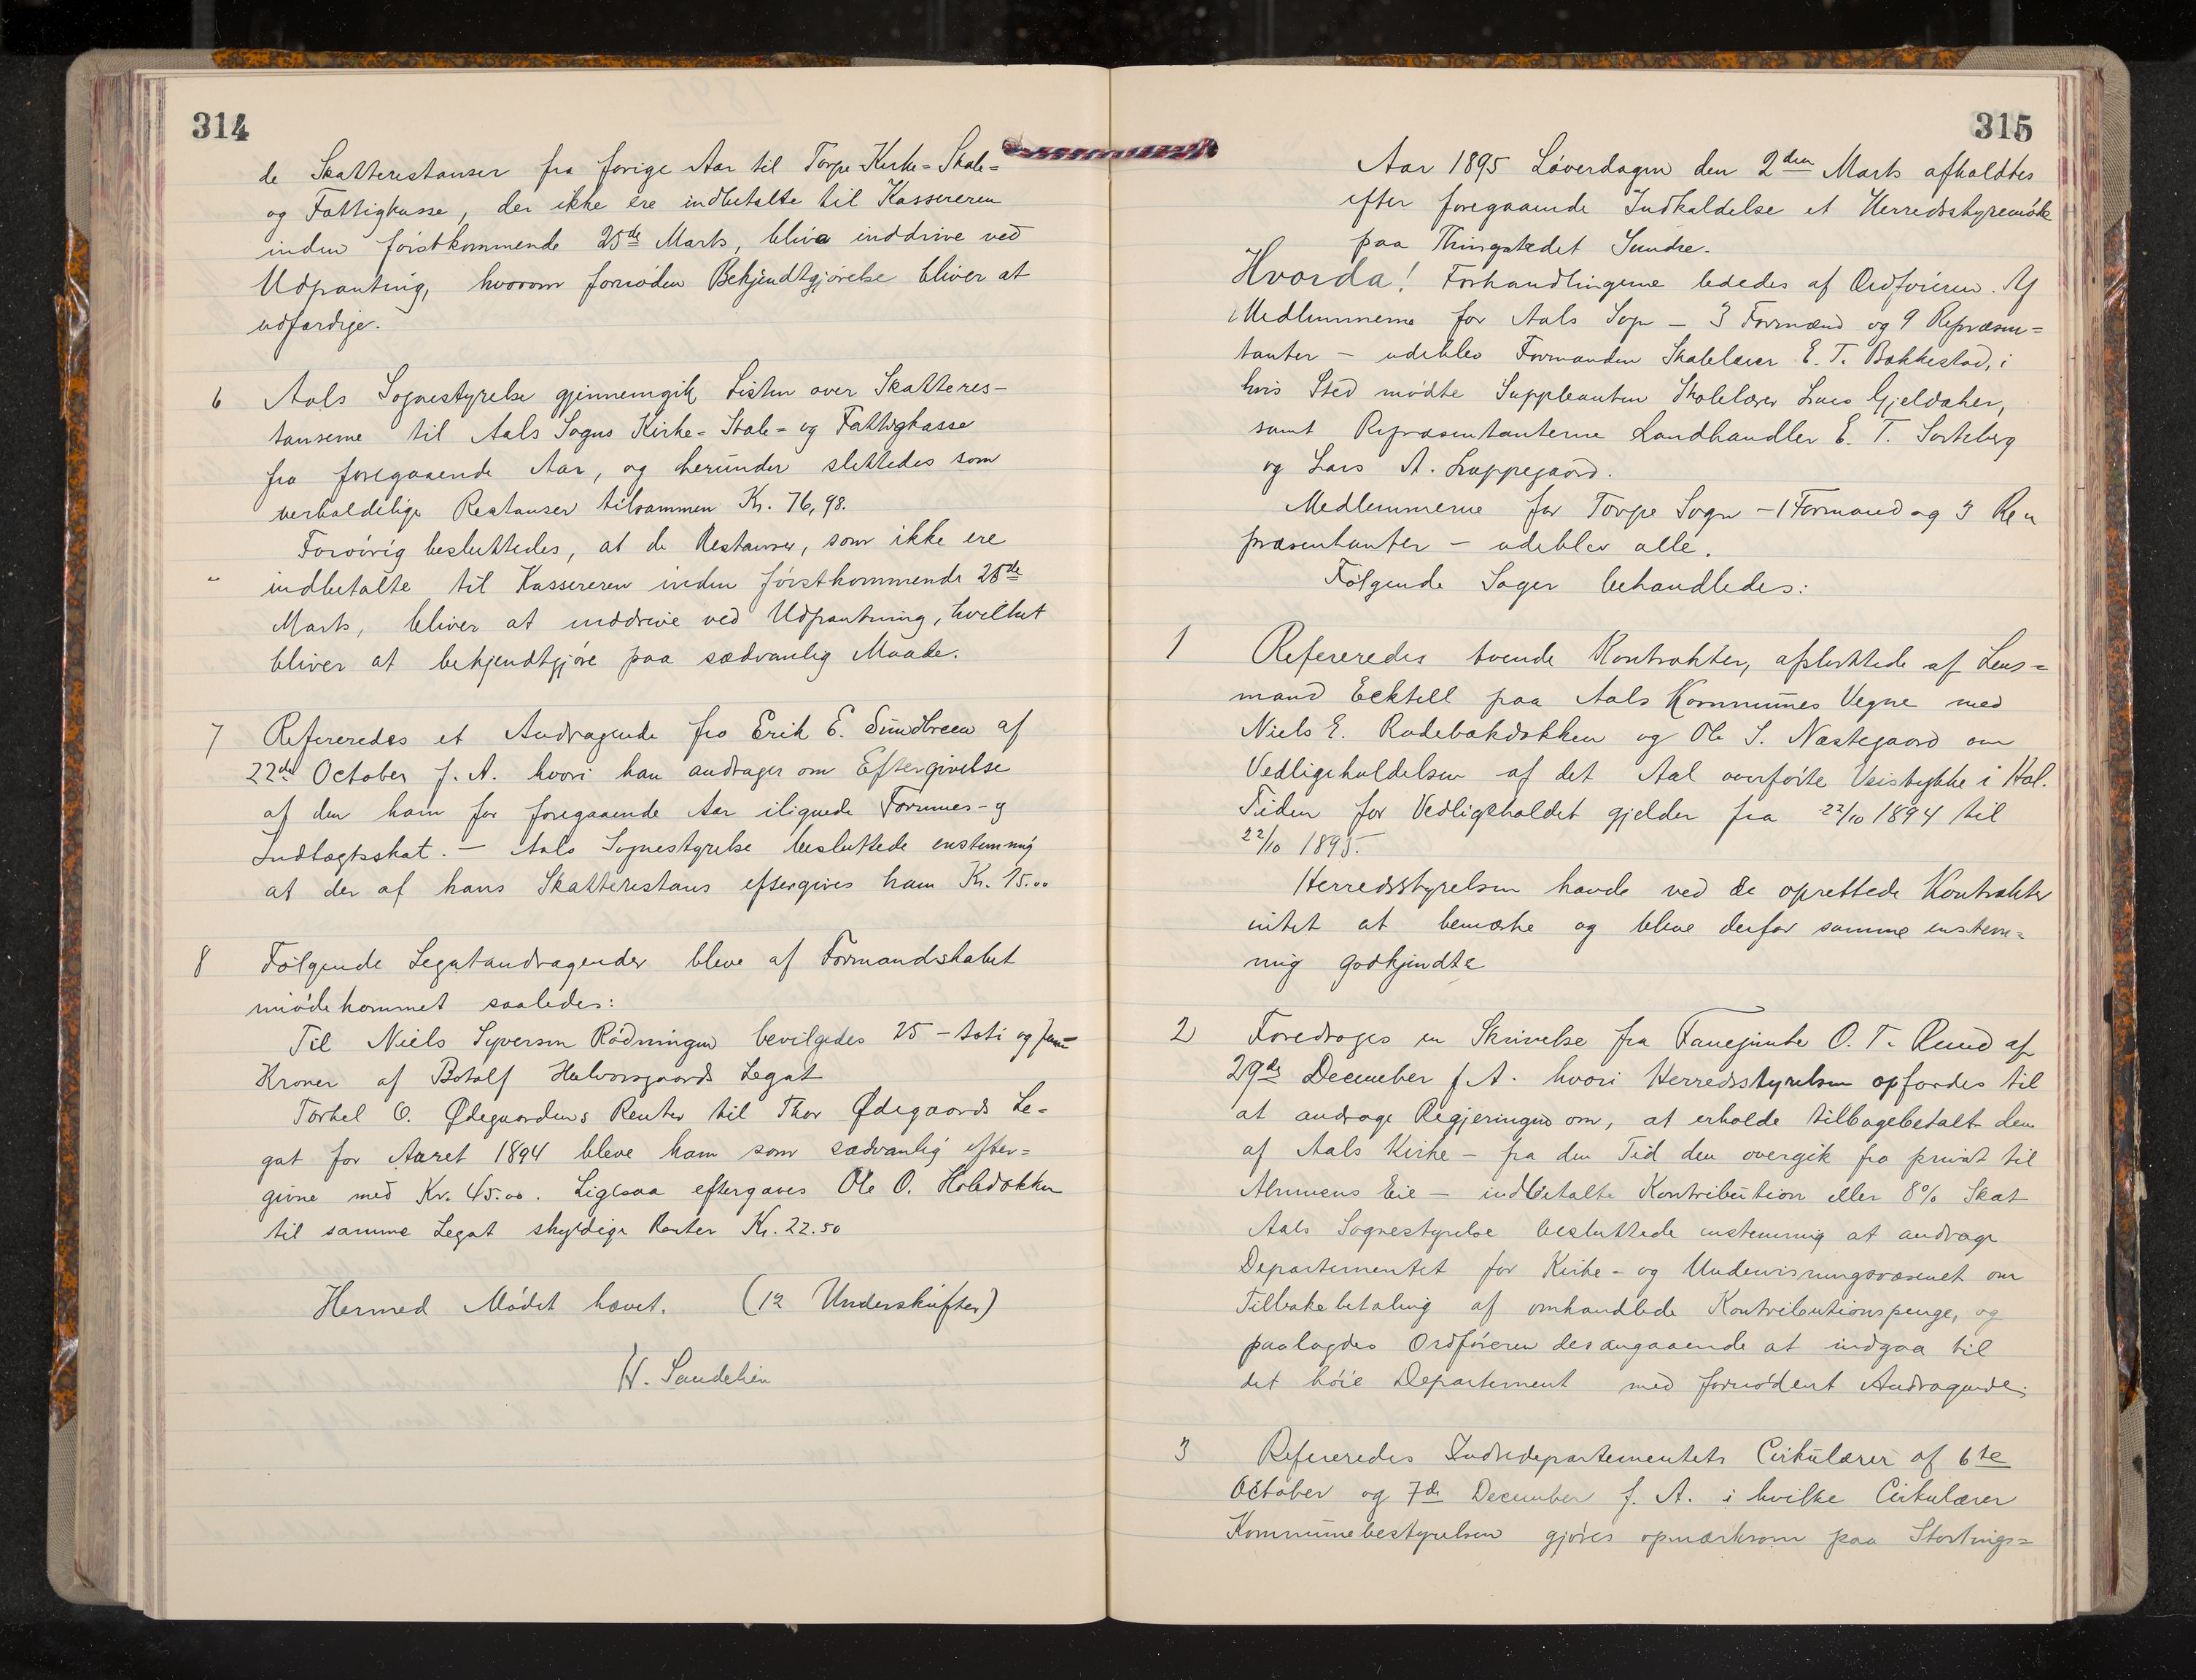 314
de Skatterestanser fra forige Aar til Torpe Kirke- Skole=
og Fattigkasse, der ikke ere indbetalte til Kassereren
inden førstkommende 25de Marts, bliva inddrive ved
Udpantning, hvorom fornøden Bekjendtgjørelse bliver at
udfærdige.
6 Aals Sognestyrelse gjennemgik Listen over Skatteres-
tanserne til Aals Sogns Kirke- Skole- og Fattigkasse
fra foregaaende Aar, og herunder slettedes som
uerholdelige Restanser tilsammen Kr. 76,98.
Forøvrig besluttedes, at de Restanser, som ikke ere
indbetalte til Kassereren inden førstkommende 25de
Marts, bliver at inddrive ved Udpantning, hvilket
bliver at bekjendtgjøre paa sædvanlig Maade.
7 Refereredes et Andragende fra Erik E. Sundbreen af
22de October f. A. hvori han andrager om Eftergivelse
af den ham for foregaaende Aar ilignede Formues- og
Indtægtsskat. — Aals Sognestyrelse besluttede enstemmig
at der af hans Skatterestans eftergives ham Kr. 15.00
8 Følgende Legatandragender bleve af Formandskabet
imødekommet saaledes:
Til Niels Syversen Rødningen bevilgedes 25 - toti og fem=
Kroner af Botolf Halvorsgaards Legat
Torkel O. Ødegaardens Renter til Thor Ødegaards Le=
gat for Aaret 1894 bleve ham som sædvanlig efter=
givne med Kr. 45.00. Ligesaa eftergaves Ole O. Holedokken
til samme Legat skyldige Renter Kr. 22.50
Hermed Mødet hævet. (12 Underskrifter)
H. Sandelien
315
Aar 1895 Løverdagen den 2den Marts afholdtes
efter foregaaende Indkaldelse et Herredsstyremøde
paa Thingstedet Sundre.
Hvorda! Forhandlingerne lededes af Ordføreren. Af
Medlemmerne for Aals Sogn — 3 Formænd og 9 Repræsen=
tanter — udeblev Formanden Skolelærer E. T. Bakkestad, i
hvis Sted mødte Suppleanten Skolelærer Lars Gjeldaker,
samt Repræsentanterne Landhandler E. T. Sorteberg
og Lars A. Luppegaard.
Medlemmerne for Torpe Sogn — 1 Formand og 3 Re=
præsentanter — udeblev alle.
Følgende Sager behandledes:
1 Refereredes tvende Kontrakter, afsluttede af Lens=
mand Ecktell paa Aals Kommunes Vegne med
Niels E. Rudebakdokken og Ole S. Nestegaard om
Vedligeholdelsen af det Aal overførte Veistykke i Hol.
Tiden for Vedligeholdet gjelder fra 22/10 1894 til
22/10 1895.
Herredsstyrelsen havde ved de oprettede Kontrakter
intet at bemærke og bleve derfor samme enstem=
mig godkjendte
2 Foredroges en Skrivelse fra Fanejunker O. T. Ruud af
29de December f. A. hvori Herredsstyrelsen opfordes til
at andrage Regjeringen om, at erholde tilbagebetalt den
af Aals Kirke — fra den Tid den overgik fra privat til
Almuens Eie — indbetalte Kontribution eller 8% Skat
Aals Sognestyrelse besluttede enstemmig at andrage
Departementet for Kirke- og Undervisningsvæsenet om
Tilbakebetaling af omhandlede Kontributionspenge, og
paalagdes Ordføreren desangaaende at indgaa til
det høie Departement med fornødent Andragende.
3 Refereredes Indredepartementets Cirkulærer af 6te
October og 7de December f. A. i hvilke Cirkulærer
Kommunebestyrelsen gjøres opmærksom paa Stortings=